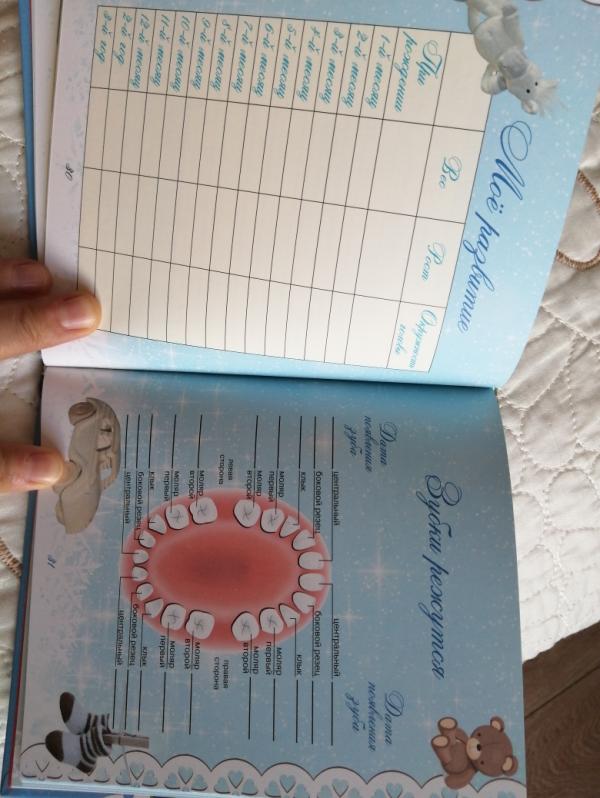 Моё развитие
Вес
Рост
Окружность
головы
При
рождении
1-й месяц
2-й месяц
3-й месяц
4-й месяц
5-й месяц
6-й месяц
7-й месяц
8-й месяц
9-й месяц
10-й месяц
11-й месяц
12-й месяц
2-й год
3-й год
30
Зубки режутся
Дата
появления
зуба
Дата
появления
зуба
центральный
боковой резец
клык
моляр
первый
моляр
второй
левая
сторона
моляр
второй
моляр
первый
клык
боковой резец
центральный
центральный
боковой резец
клык
моляр
первый
моляр
второй
правая
сторона
моляр
второй
моляр
первый
клык
боковой резец
центральный
31